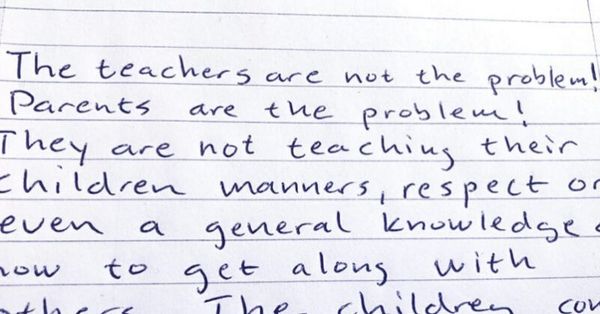 The teachers are not the problem!
Parents are the problem!
They are not teaching their
children manners, respect or
even a general knowledge
how to get along with
The children